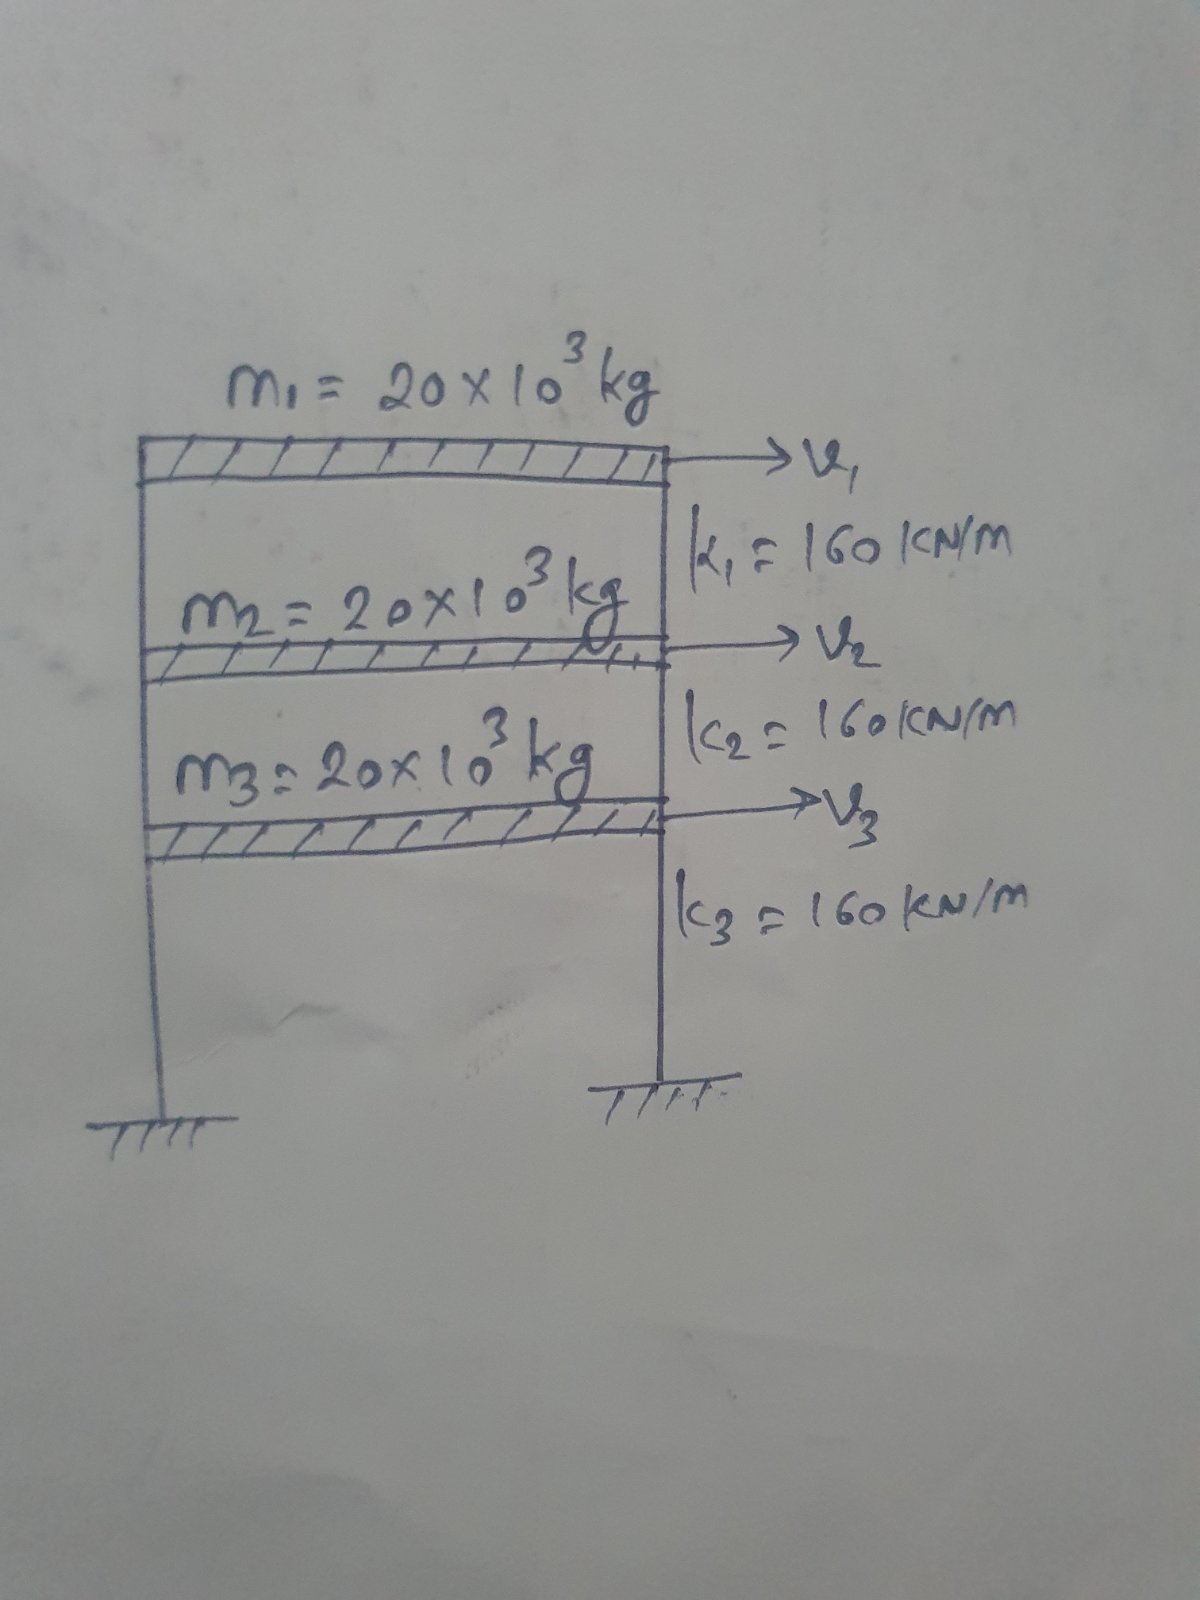 m₁ = 20 × 10³ kg
v₁
k₁ = 160 KN/m
m₂ = 20 × 10³ kg
v₂
k₂ = 160 KN/m
m₃ = 20 × 10³ kg
v₃
k₃ = 160 KN/m